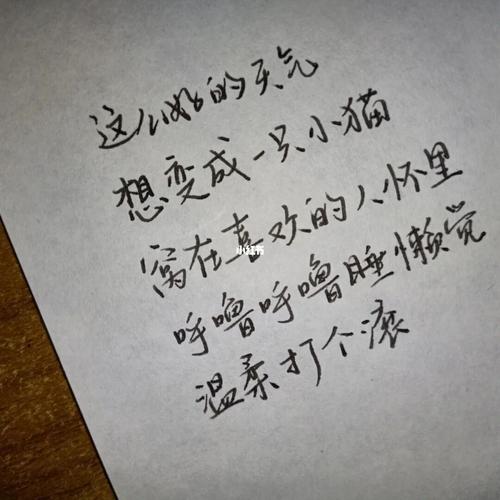 这么好的天气
想变成一只小猫
窝在喜欢的人怀里
小红书
呼噜呼噜睡懒觉
温柔打个滚